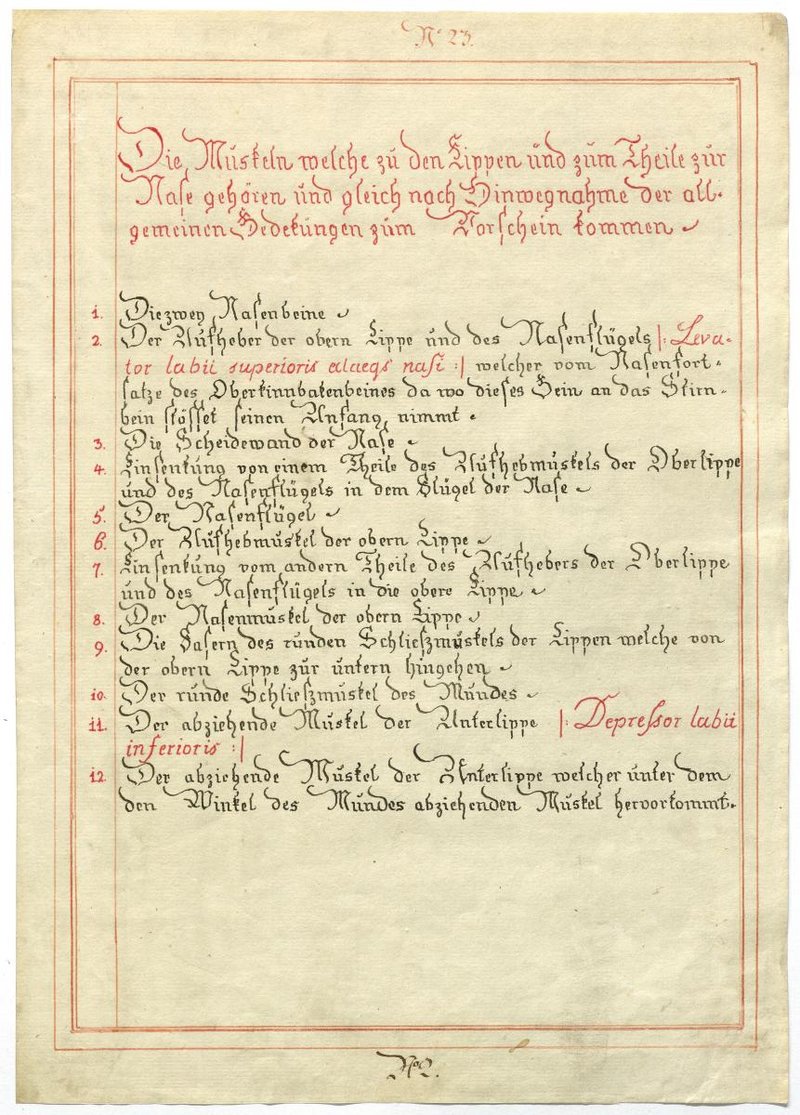 No 23.
Die Muskeln welche zu den Lippen und zum Theile zur
Nase gehören und gleich nach Hinwegnahme der all-
gemeinen Bedekungen zum Vorschein kommen
1. Die zwey Nasenbeine
2. Der Aufheber der obern Lippe und des Nasenflügels |: Leva-
tor labii superioris alaeqs nasi :| welcher vom Nasenfort-
satze des Oberkinnbakenbeines da wo dieses Bein an das Stirn-
bein stösset seinen Anfang nimmt.
3. Die Scheidewand der Nase
4. Einsenkung von einem Theile des Aufhebmuskels der Oberlippe
und des Nasenflügels in dem Flügel der Nase
5. Der Nasenflügel
6. Der Aufhebmuskel der obern Lippe
7. Einsenkung vom andern Theile des Aufhebers der Oberlippe
und des Nasenflügels in die obere Lippe
8. Der Nasenmuskel der obern Lippe
9. Die Fasern des runden Schließmuskels der Lippen welche von
der obern Lippe zur untern hingehen
10. Der runde Schließmuskel des Mundes
11. Der abziehende Muskel der Unterlippe |: Depressor labii
inferioris :|
12. Der abziehende Muskel der Unterlippe welcher unter dem
den Winkel des Mundes abziehenden Muskel hervorkommt.
No 2.